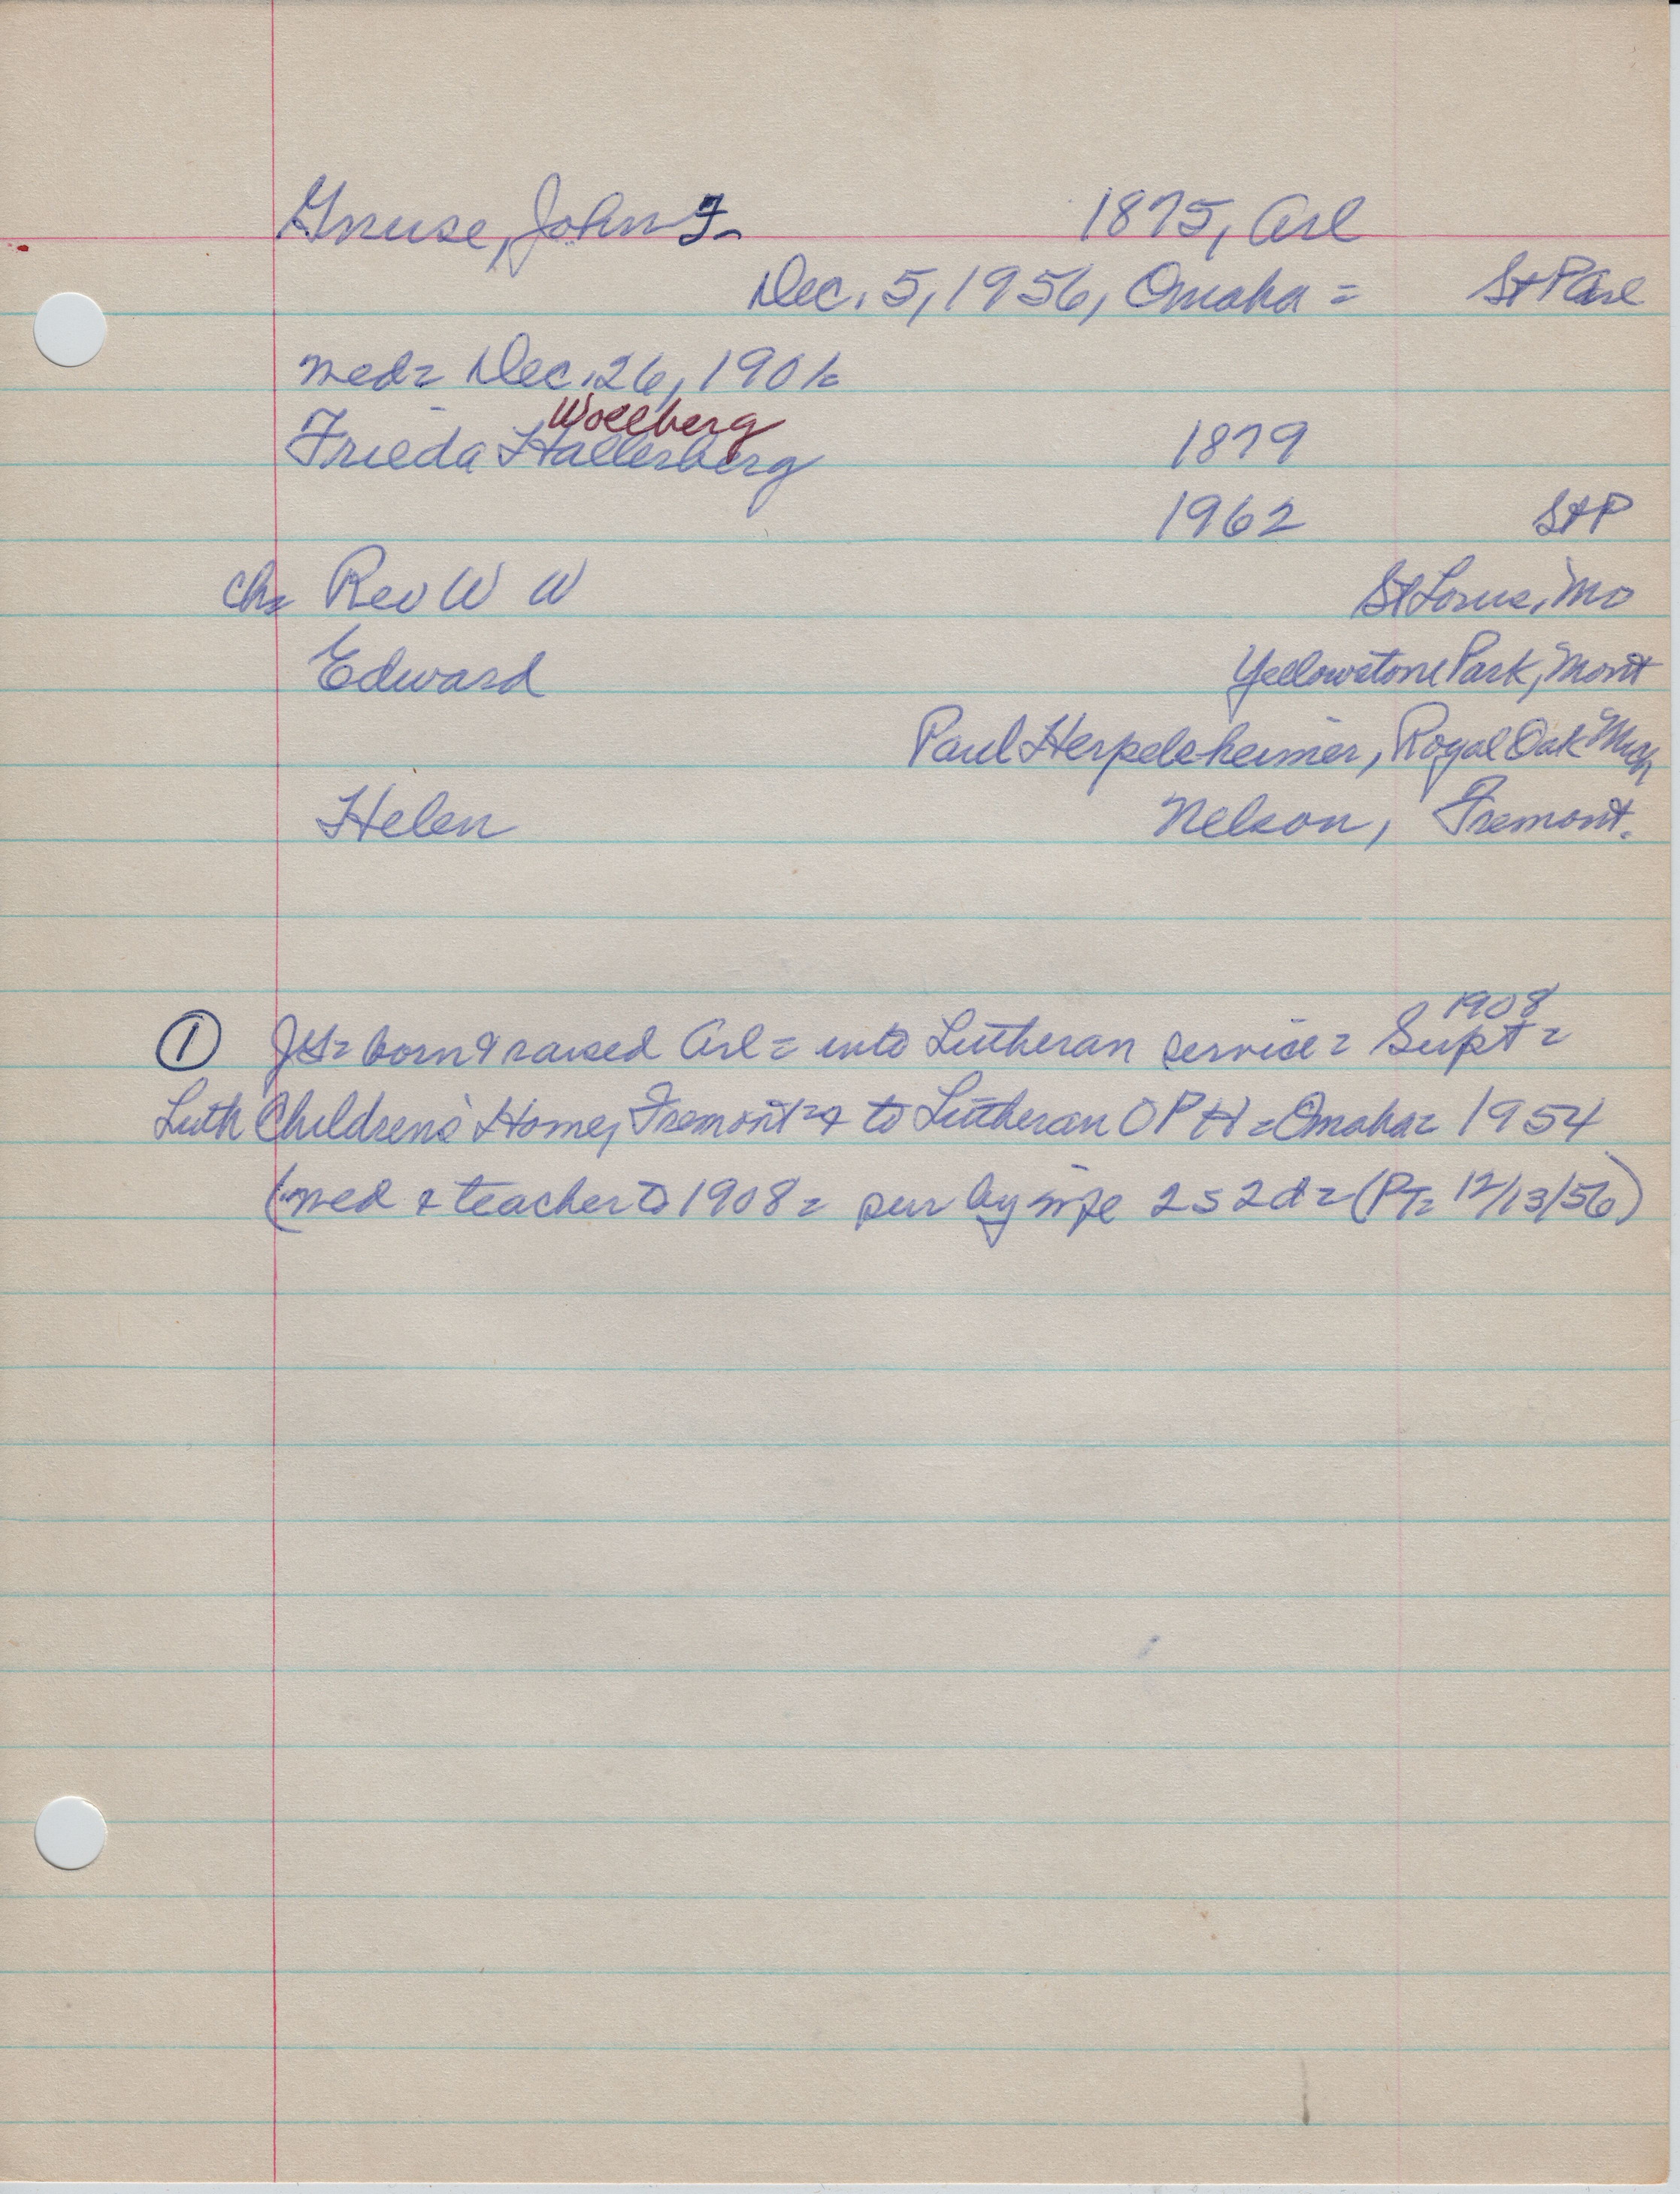 Gnuse, John F. 1875, Arl
Dec. 5, 1956, Omaha = St P Arl
med = Dec. 26, 1901 =
Wollberg
Frieda Hallerberg 1879
1962 St P
ch = Rev W W St Louis, Mo
Edward Yellowstone Park, Mont
Paul Herpelsheimer, Royal Oak Mich
Helen Nelson, Fremont.
1908
① JG = born & raised Arl = into Lutheran service = Supt =
Luth Children's Home, Fremont = & to Lutheran OPH = Omaha = 1954
(med & teacher to 1908 = sur by wife 2s 2d = (PT = 12/13/56)